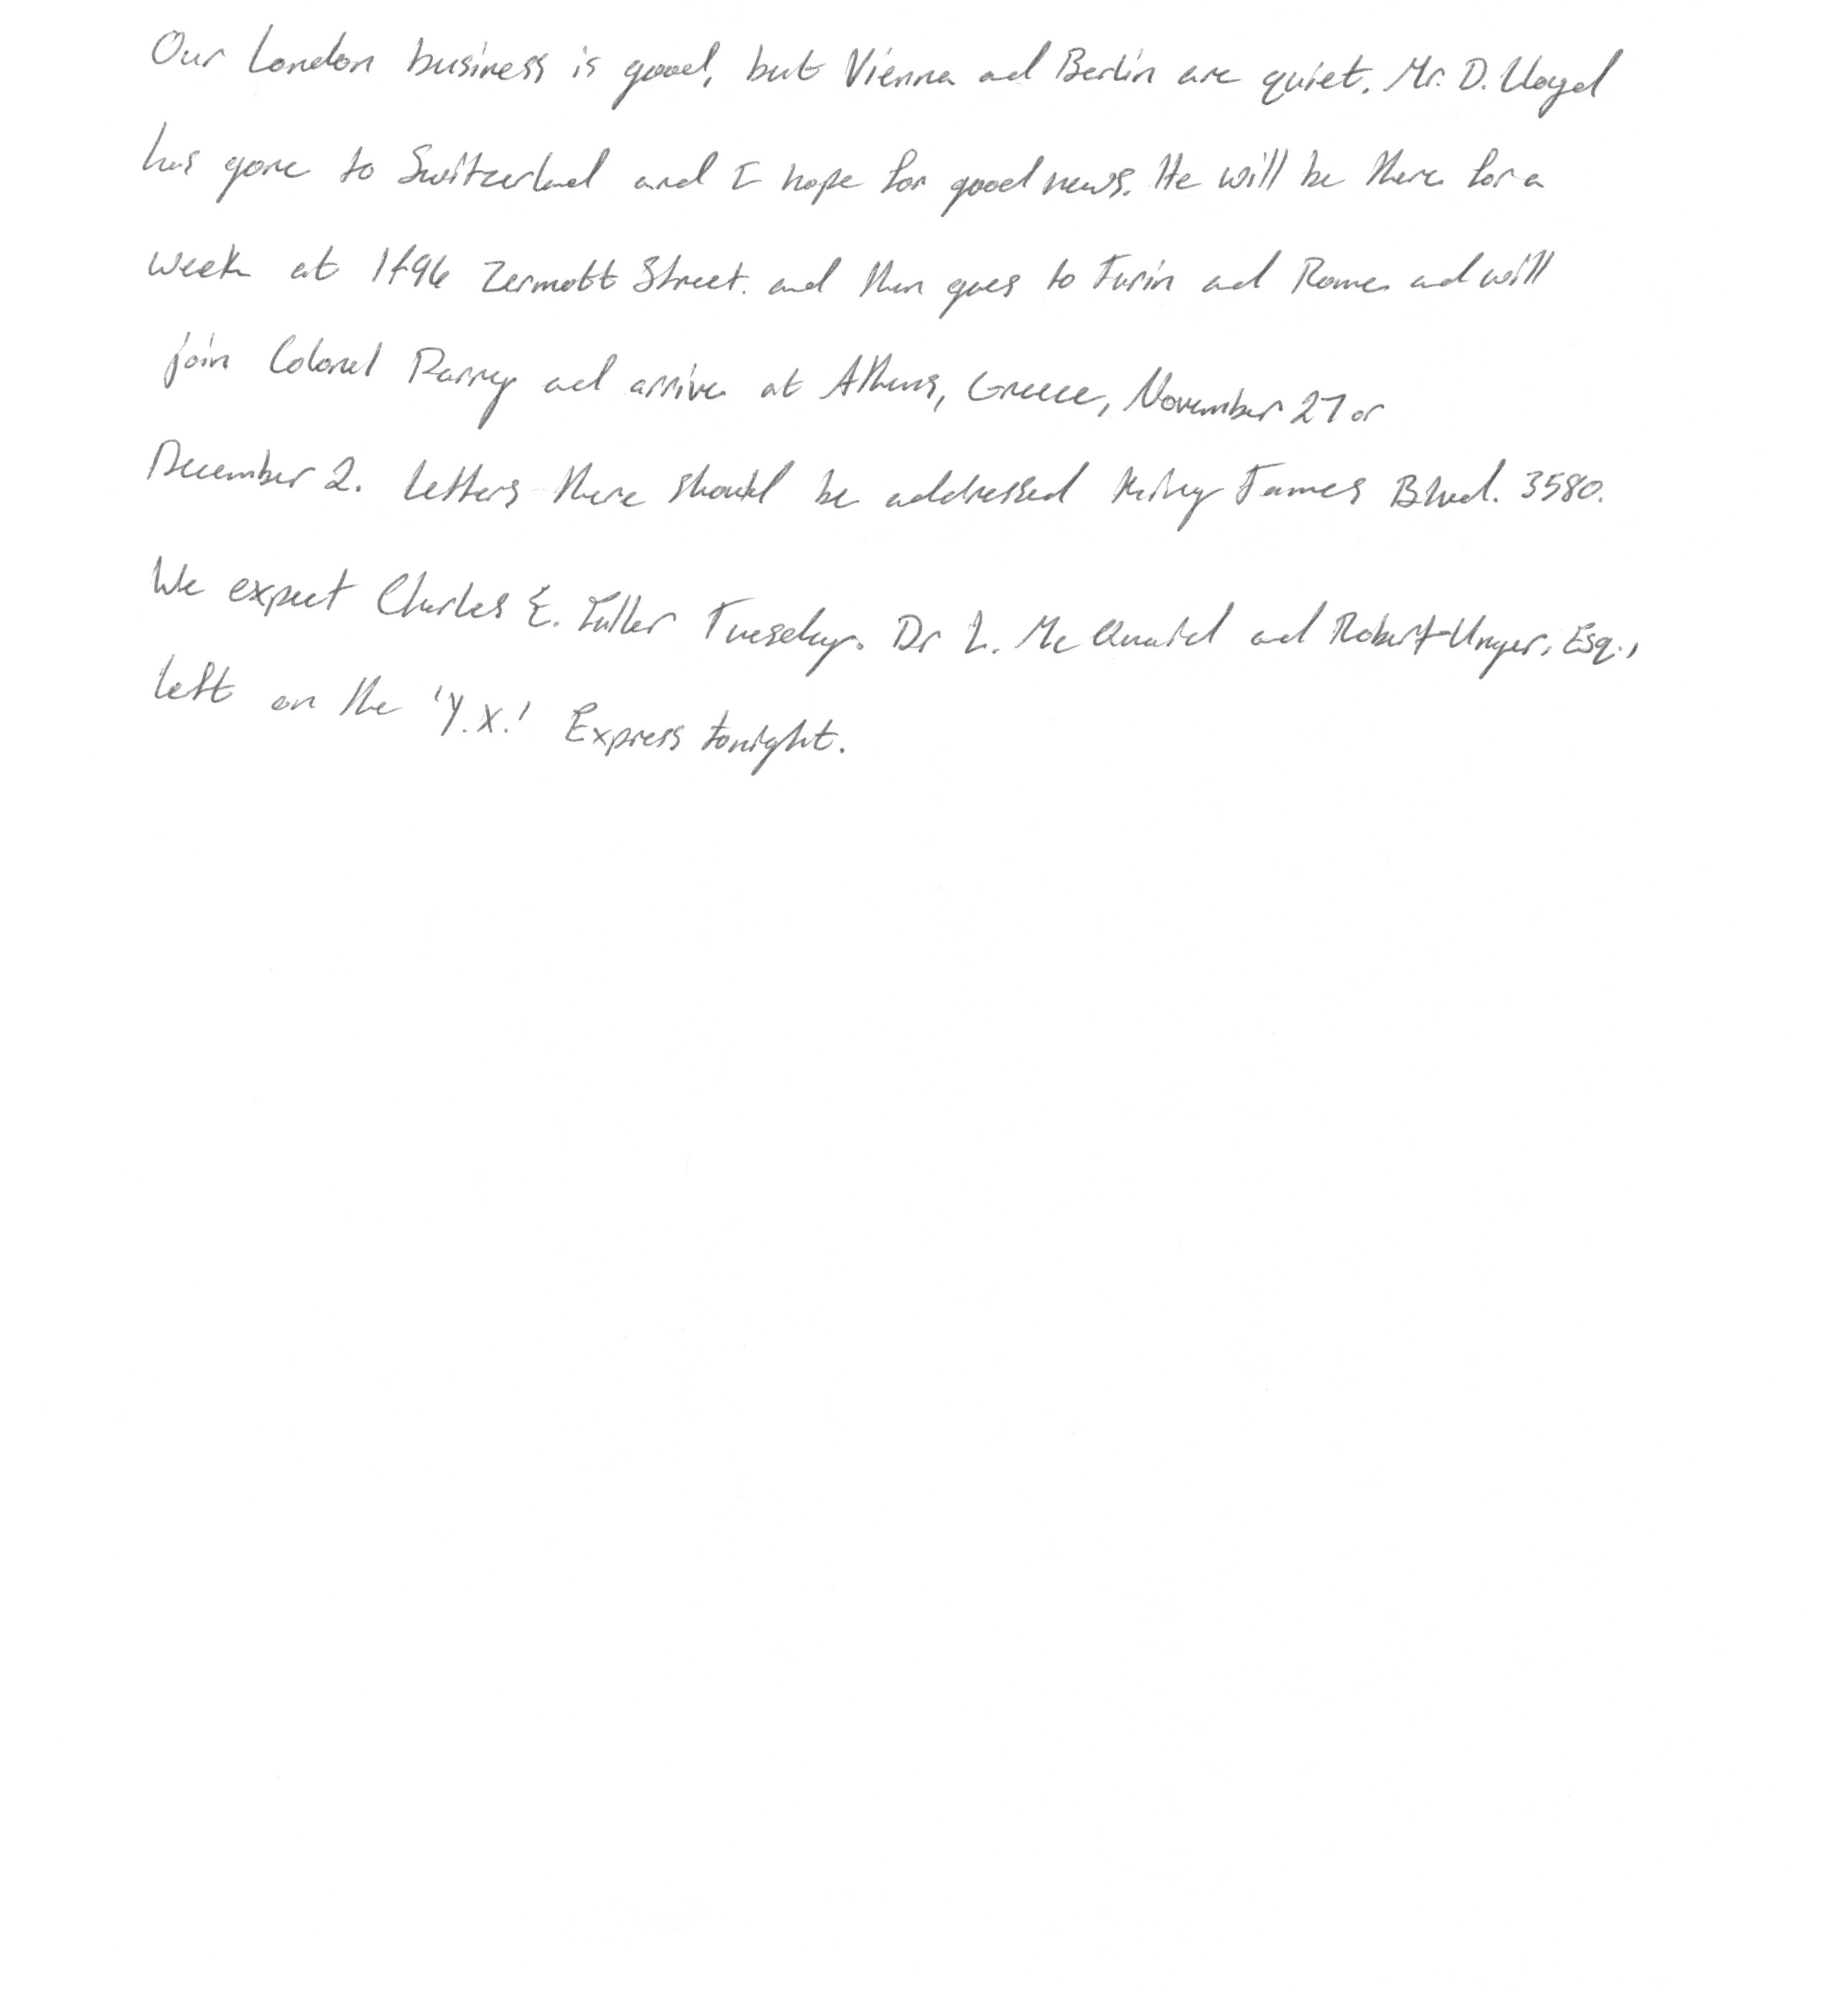 Our London business is good, but Vienna and Berlin are quiet. Mr. D. Lloyd
has gone to Switzerland and I hope for good news. He will be there for a
week at 1496 Zermott Street. and then goes to Turin and Rome and will
join Colonel Parry and arrive at Athens, Greece, November 27 or
December 2. Letters there should be addressed King James Blvd. 3580.
We expect Charles E. Fuller Tuesday. Dr L. McQuaid and Robert Unger, Esq.,
left on the 'Y.X.' Express tonight.